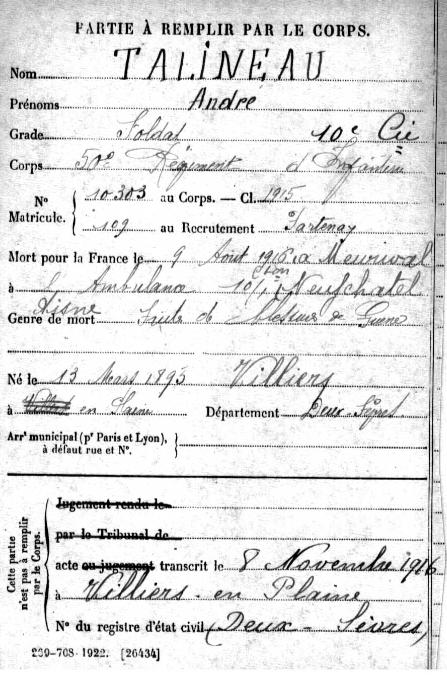 PARTIE À REMPLIR PAR LE CORPS.
Nom TALINEAU
Prénoms André
Grade Soldat 10e Cie
Corps 50e Régiment d'Infanterie
N° Matricule. { 10303 au Corps. — Cl. 1915
109 au Recrutement Partenay
Mort pour la France le 9 Août 1916 à Meurival
à l'Ambulance 10/1 Neufchatel
Aisne
Genre de mort Suite de Blessures de Guerre
Né le 13 Mars 1895 Villiers
à Villiers en Plaine Département Deux-Sèvres
Arrt municipal (pr Paris et Lyon), à défaut rue et N°. }
Cette partie n'est pas à remplir par le Corps.
Jugement rendu le
par le Tribunal de
acte ou jugement transcrit le 8 Novembre 1916
à Villiers-en Plaine
N° du registre d'état civil (Deux-Sèvres)
239-708-1922. [26434]